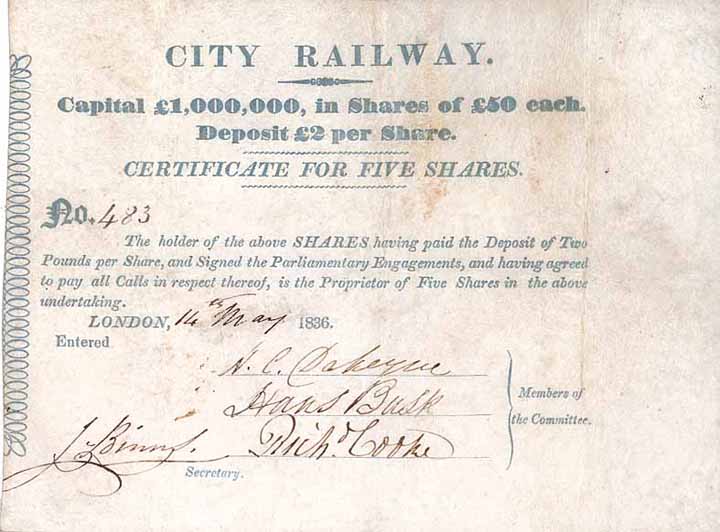 CITY RAILWAY.
Capital £1,000,000, in Shares of £50 each.
Deposit £2 per Share.
CERTIFICATE FOR FIVE SHARES.
No. 483
The holder of the above SHARES having paid the Deposit of Two
Pounds per Share, and Signed the Parliamentary Engagements, and having agreed
to pay all Calls in respect thereof, is the Proprietor of Five Shares in the above
undertaking.
LONDON, 14th May 1836.
Entered
Hans Busk
Richd Cooke
Members of
the Committee.
Secretary.